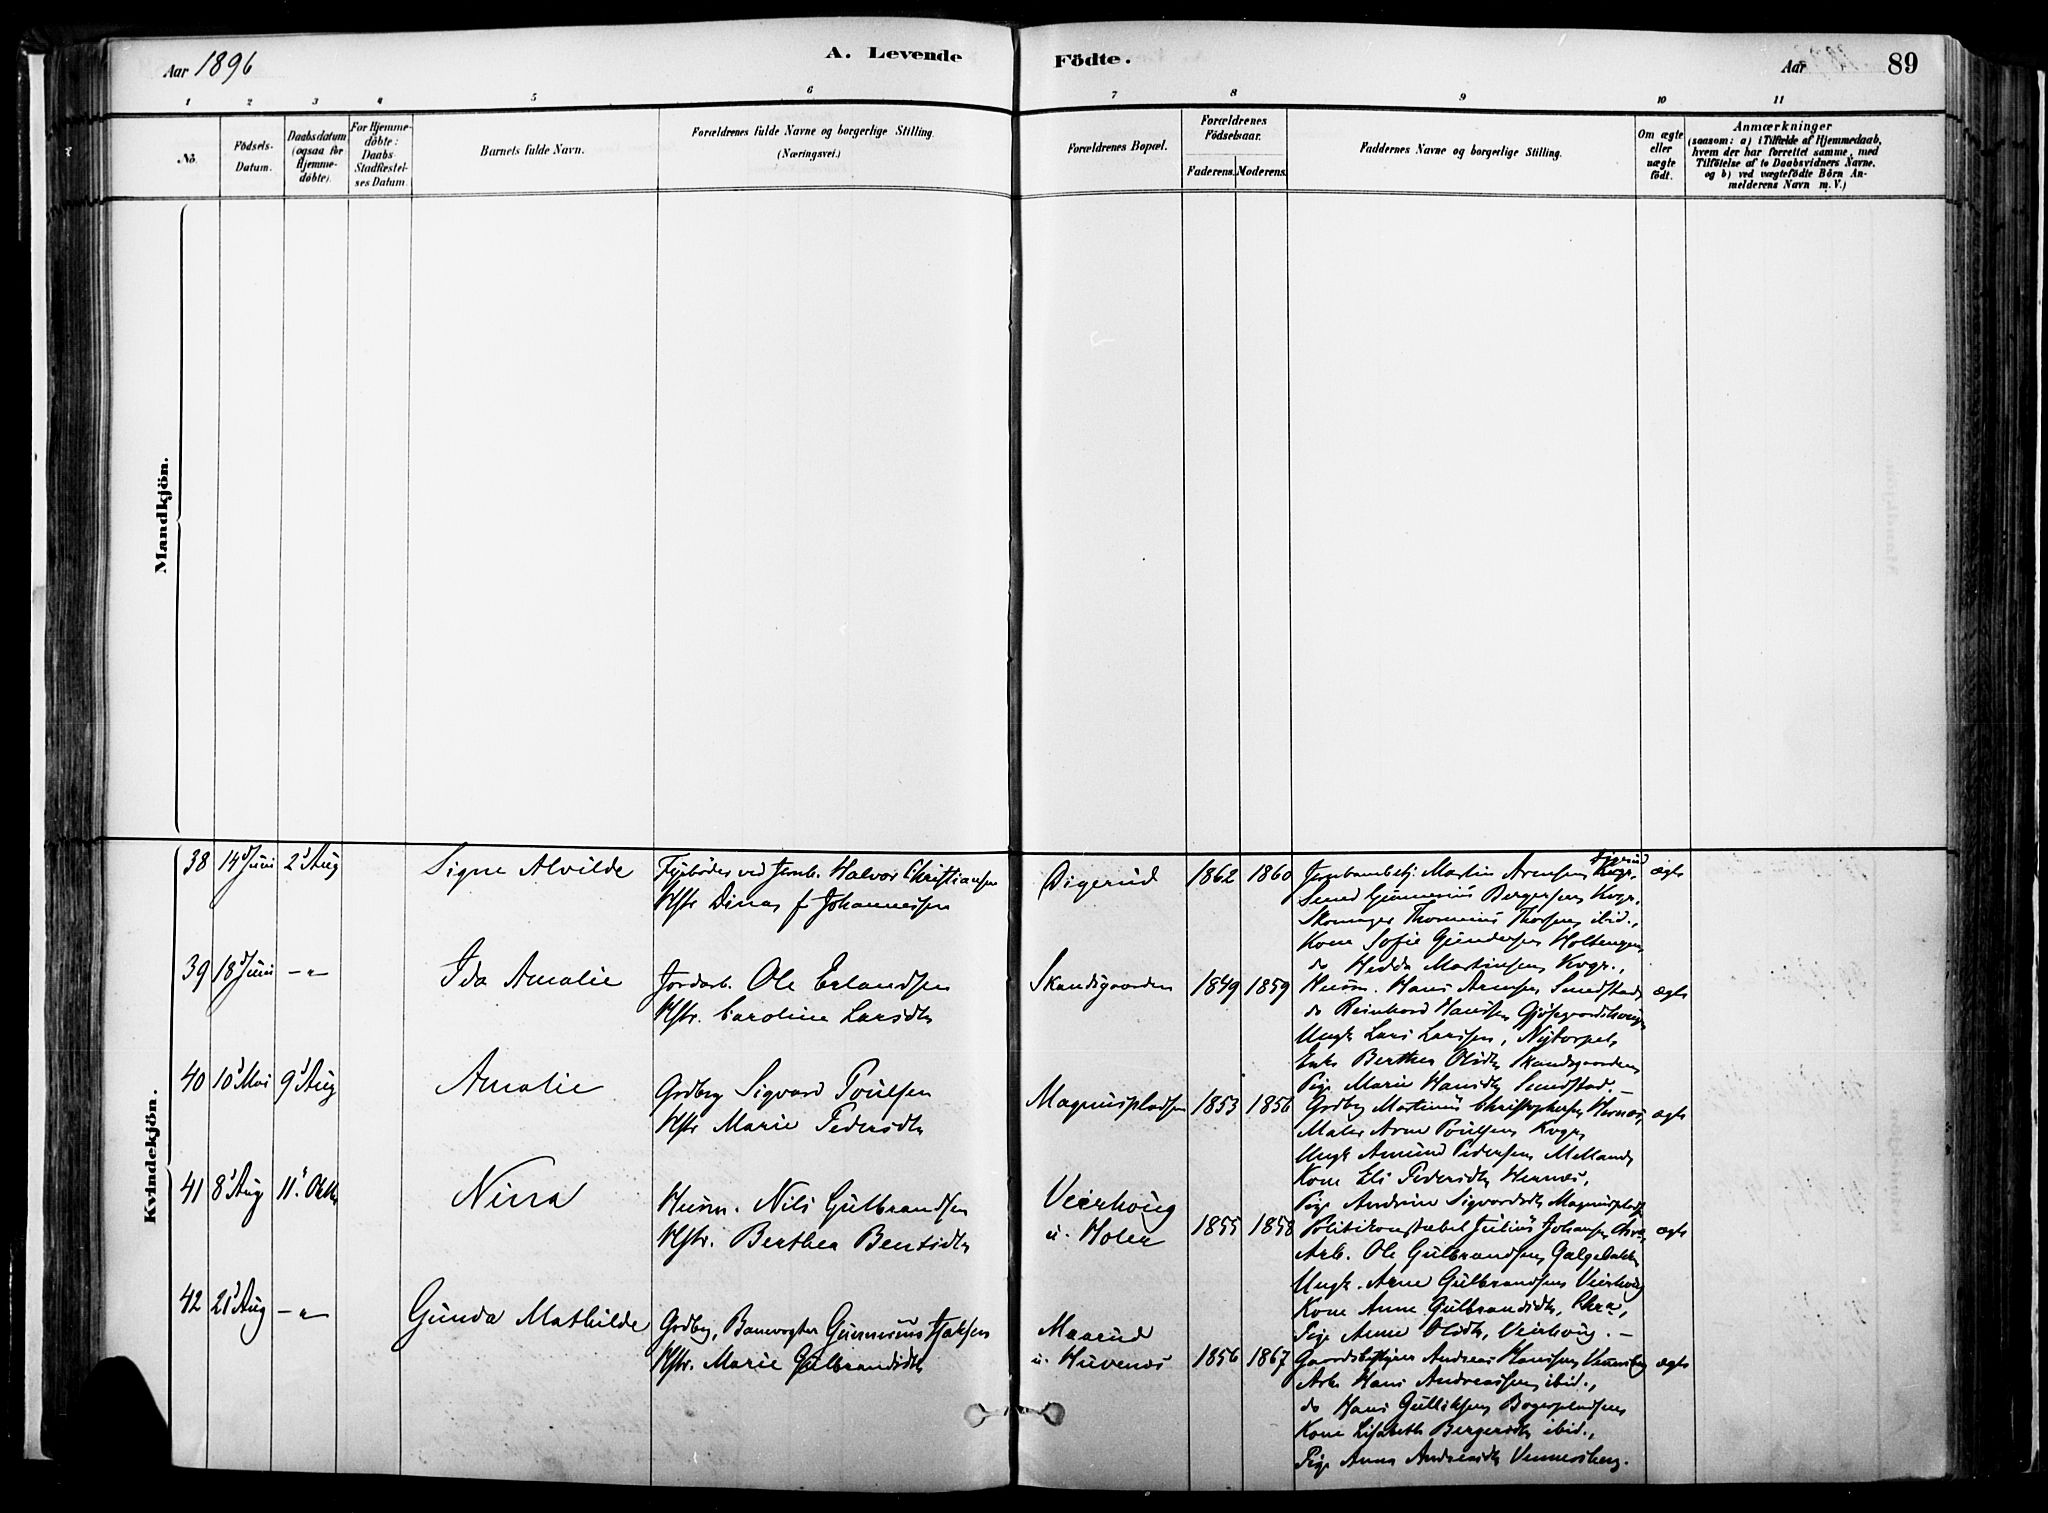 Aar 1896
A. Levende
Födte.
Aar
89
1 2 3 4 5 6 7 8 9 10 11
No.
Födsels-
Datum.
Daabsdatum
(ogsaa for
Hjemme-
døbte).
For Hjemme-
døbte:
Daabs-
Stadfæstel-
ses Datum
Barnets fulde Navn.
Forældrenes fulde Navne og borgerlige Stilling.
(Næringsvei.)
Forældrenes Bopæl.
Forældrenes
Födselsaar.
Faderens. Moderens.
Faddernes Navne og borgerlige Stilling.
Om ægte
eller
uægte
födt.
Anmærkninger
(saasom: a) i Tilfælde af Hjemmedaab,
hvem der har forrettet samme, med
Tilföielse af to Daabsvidners Navne.
og b) ved uægtefödte Börn An-
melderens Navn m. V.)
Mandkjön.
Kvindekjön.
38 14 Juni 2 Aug Signe Alvilde
Fyrbøder ved Jernb. Halvor Christiansen
Hstr Dina f Johannessen
Digerud 1862 1860
Jernbanebetj. Martin Arensen Kvgr. ægte
Smed Gunnerius Bergersen Kvgr.
Skomager Thorsen ibid.,
Kone Sofie Gundersen
do Hedda Martinsen Kvgr.,
39 18 Juni -"- Ida Amalie
Jordarb. Ole Erlandsen
Hstr. Caroline Larsdtr
Skandsgaarden 1849 1859
Husm. Hans Arnesen Sundstad ægte
do Reinhard Hansen
Ungk Lars Larssen, Nytorpet
Enke Berthea Olsdtr Skandsgaarden
Pige Marie Hansdtr Sundstad. –
40 10 Mai 9 Aug Amalie
Grdbrg Sigvard Poulsen
Hstr Marie Pedersdtr
Magnuspladsen 1853 1856
Grdbrg Martinus Christophersen Hernæs, ægte
Maler Arne Poulsen Kvgr.
Ungk Amund Pedersen Melland
Kone Eli Pedersdtr Hernæs,
Pige Andrine Sigvardsdtr Magnusplads.
41 8 Aug 11 Oktbr Nina
Husm. Nils Gulbrandsen
Hstr. Berthea Bentsdtr
Veierhoug
u. Holer 1855 1858
Politikonstabel Julius Johansen Chra, ægte
Arb. Ole Gulbrandsen Galgebakken
Ungk. Arne Gulbrandsen Veierhoug
Kone Anne Gulbrandsdtr, Chra,
Pige Anne Olsdtr, Veierhoug. –
42 21 Aug -"- Gunda Mathilde
Grdbrg, Banevogter Gunnerius Isaksen
Hstr. Marie Gulbrandsdtr
Maarud
u. Huvenæs 1856 1867
Gaardsbestyrer Andreas Hanssen Vennesberg ægte
Arb Hans Andreassen ibid.,
do Hans Gulliksen Bogerpladsen
Kone Lisabeth Bergersdtr ibid.,
Pige Anna Andreasdtr Vennesberg.